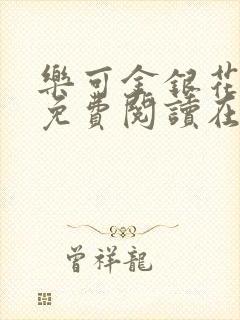 樂可金銀花
免費閱讀在
曾祥龍